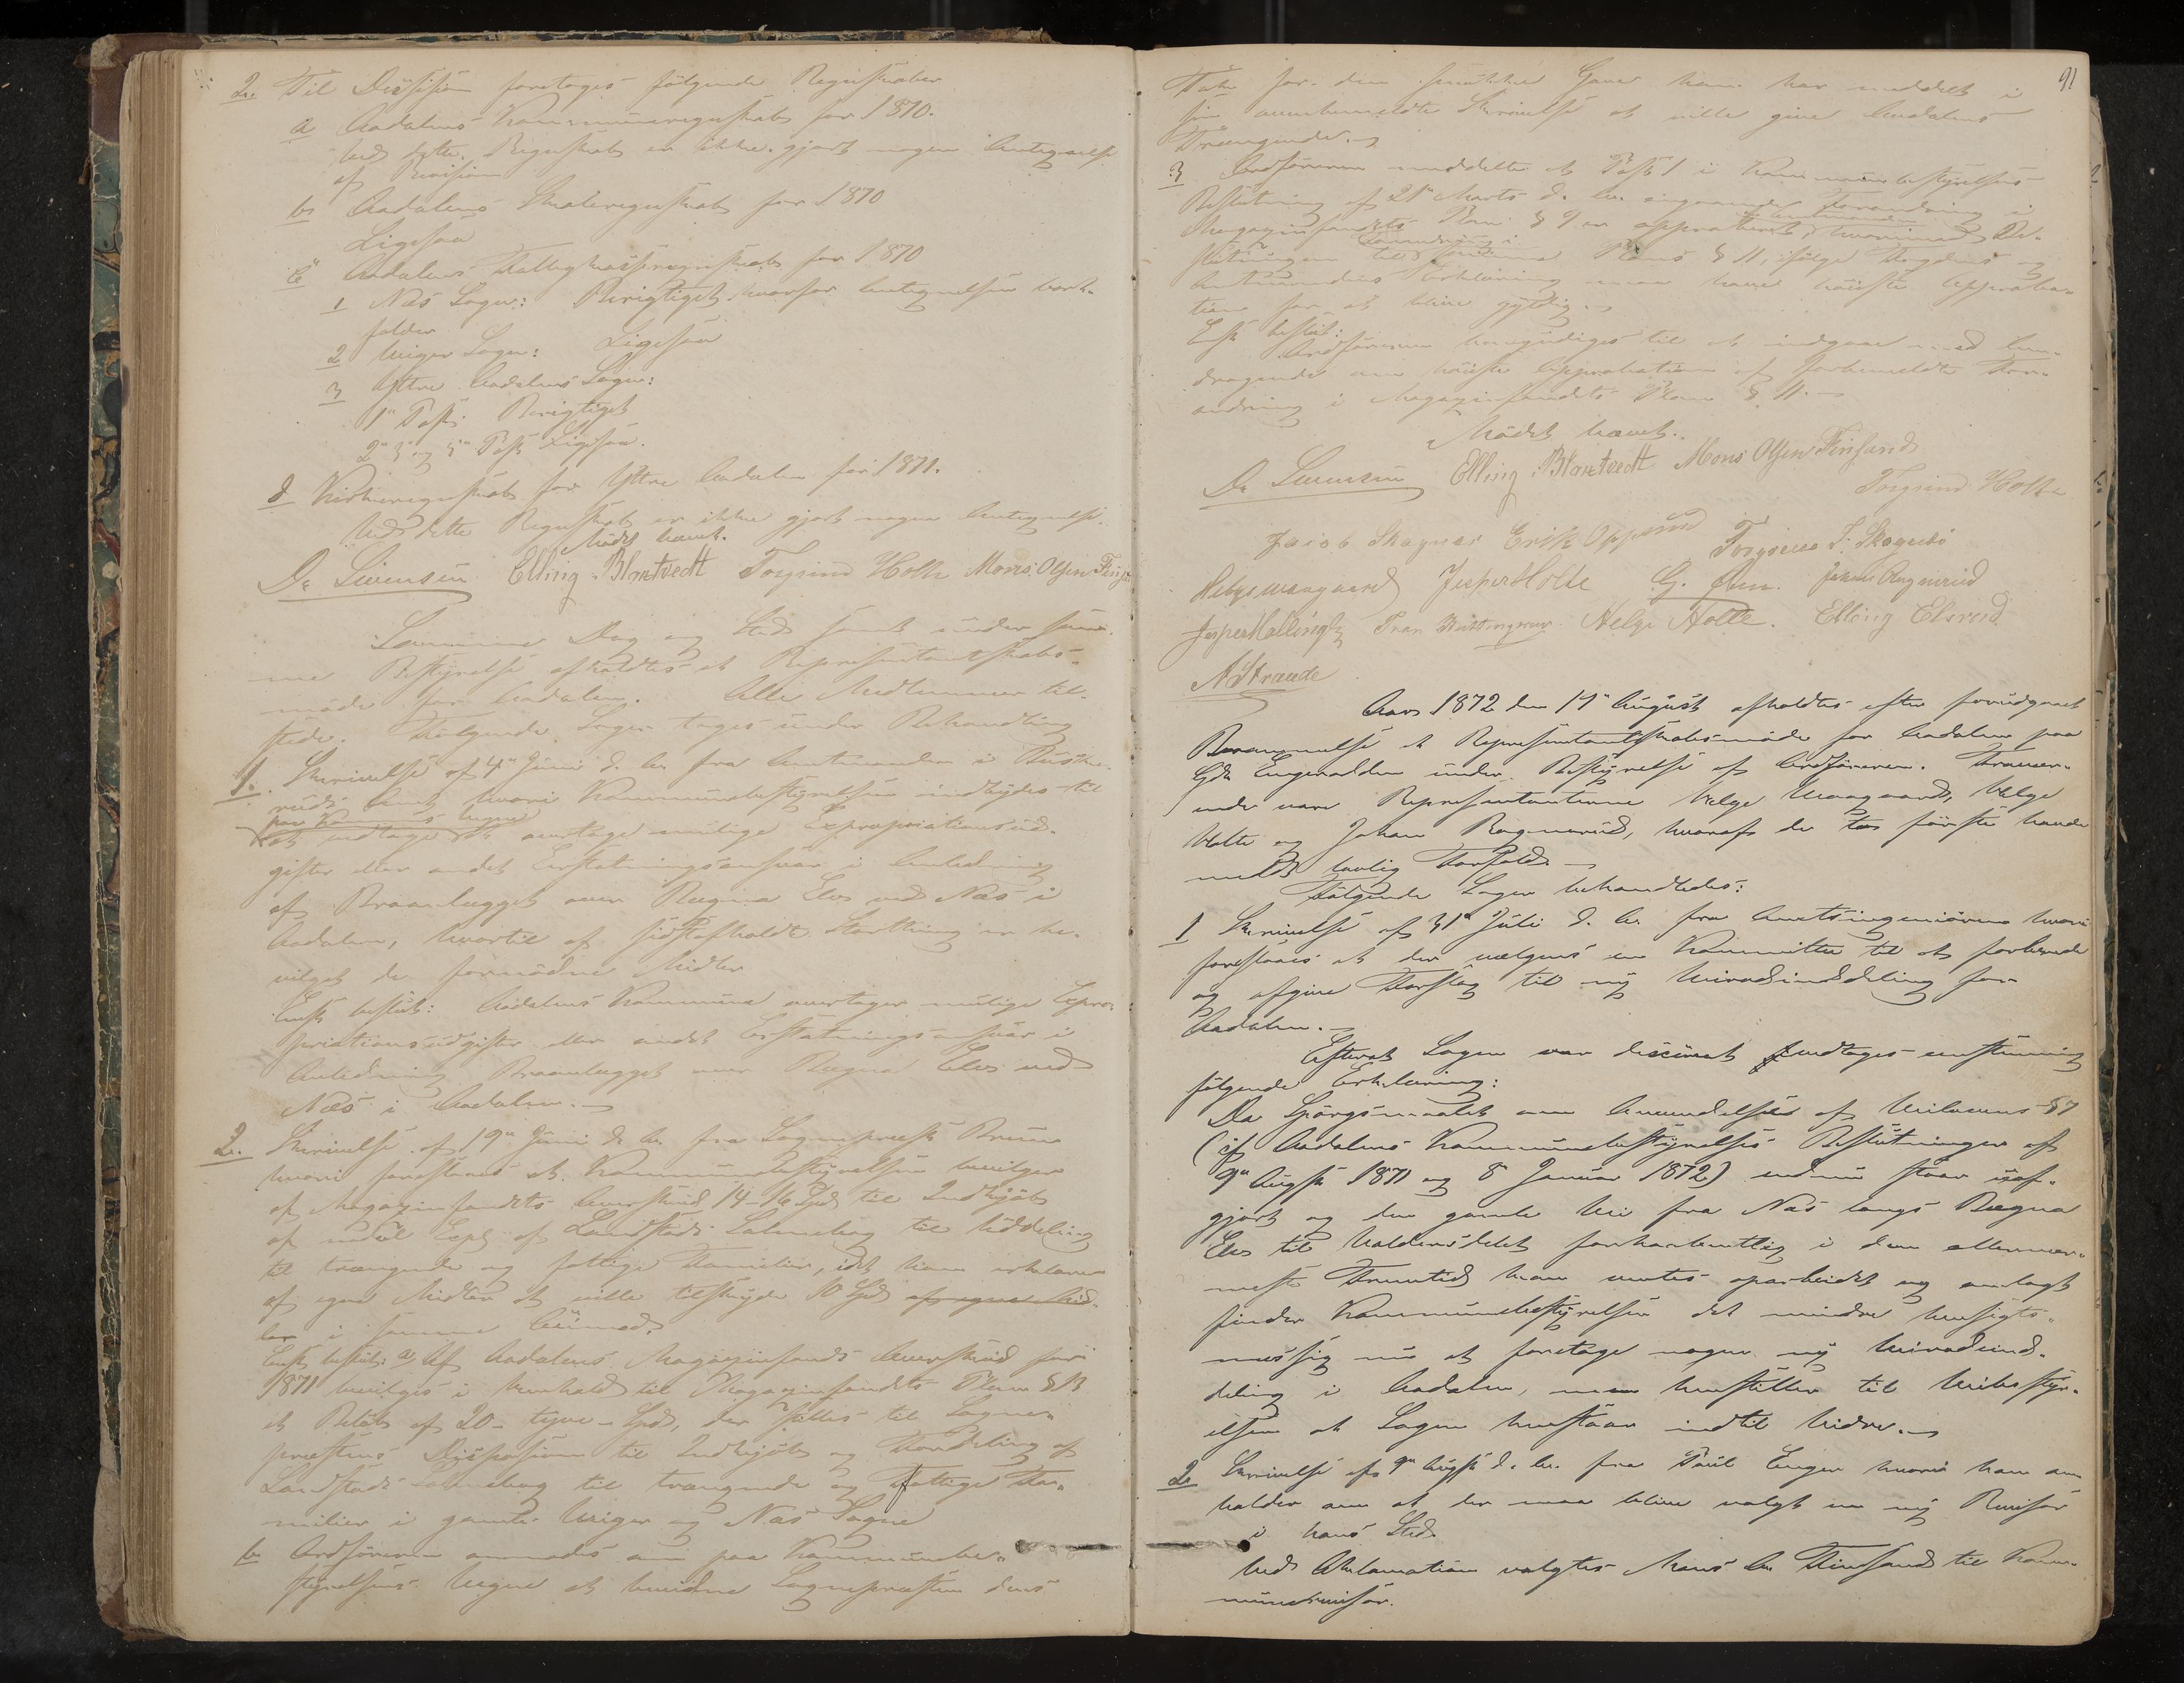 2. Til Decision foretoges følgende Regnskaber
a Aadalens Kommuneregnskab for 1870.
Ved dette Regnskab er ikke gjort nogen Antegnelse
af Revision
b Aadalens Skoleregnskab for 1870
Ligesaa
c Aadalens Fattigkasseregnskab for 1870
1 Næs Sogn: Berigtiget hvorfor Antegnelsen bort-
falder
2 Viger Sogn: Ligesaa
3 Yttre Aadalens Sogn:
1ste Post. Berigtiget
2den 3die og Post Ligesaa.
d Kirkeregnskab for Yttre Aadalen for 1871.
Ved dette Regnskab er ikke gjort nogen Antegnelse.
Mødet hævet.
Elling Blaktvedt Torgrim Holte Mons Olsen
Samme Dag og Sted samt under sam-
me Bestyrelse afholdtes et Repræsentantskabs-
møde for Aadalen. Alle Medlemmer til-
stede. Følgende Sager toges under Behandling
1. Skrivelse af 4de Juni d. A. fra Amtmanden i Buske-
ruds Amt hvori Kommunebestyrelsen indbydes til
paa Kommunens Vegne
at overtage mulige Expropriationsud-
gifter eller andet Erstatningsansvar i Anledning
af Broanlægget over Bægna Elv ved Næs i
Aadalen, hvortil af sidstafholdt Storthing er be-
vilget de fornødne Midler
Enst. beslut: Aadalens Kommune overtager mulige Expro-
priationsudgifter eller andet Erstatningsansvar i
Anledning Broanlægget over Bægna Elv ved
Næs i Aadalen.
2. Skrivelse af 19de Juni d. A. fra Sognepræst Bruun
hvori foreslaaes at Kommunebestyrelsen bevilger
af Magazinfondets Overskud 14-16 Spd til Indkjøb
af Expl af Landstads Salmebog til Uddeling
til trængende og fattige Familier, idet han erklærer
af egne Midler at ville tilskyde 10 Spd af egne Mid-
ler i samme
Enst. beslut: a) Af Aadalens Magazinfonds Overskud for
1871 bevilges i Henhold til Magazinfondets Plan § 13
et Beløb af 20 - tyve - Spd, der stilles til Sogne-
præstens Disposision til Indkjøb og Fordeling af
Landstads Salmebog til trængende og fattige Fa-
milier i gamle Viger og Næs Sogne
b Ordføreren anmodes om paa Kommunebe-
styrelsens Vegne at bevidne Sognepræsten dens
91
Tak for den smukke Gave han har meddelt i
sin ovenbemeldte Skrivelse at ville give Aadalens
Trængende.
3 Ordføreren meddelte at Post 1 i Kommunebestyrelsens
Beslutning af 21de Marts d. A. angaaende Forandring i
Magazinfondets Plan § 9 er approberet hvorimod Be-
slutningen Forandring i Plans § 11, ifølge Fogdens og
Amtmandens Erklæring maa have høieste Approba-
tion for at blive gyldig.
Enst. beslut:
Ordføreren bemyndiges til at indgaae med An-
dragende om høieste Approbation af forbemeldte For-
andring i Magazinfondets Plan § 11.
Mødet hævet.
Elling Blaktvedt Mons Olsen Finsand
Torgrim Holte
Jacob Skagnæs Erik Opperud
Helge Waagaard Jesper Holte G. Johan Ragnerud
Helge Holte. Elling Elsrud
A. Strande
Aar 1872 den 17de August afholdtes efter forudgaaet
Berammelse et Repræsentantskabsmøde for Aadalen paa
Gde Engerodden under Bestyrelse af Ordføreren. Fravær-
ende vare Repræsentanterne Helge Waagaard, Helge
Holte og Johan Ragnerud, hvoraf de to første havde
meldt lovlig Forfald.
Følgende Sager behandledes:
1 Skrivelse af 31te Juli d. A. fra Amtsingeniøren hvori
foreslaaes at der vælges en Kommitte til at forberede
og afgive Forslag til ny Veirodeinddeling for
Aadalen.
Efterat Sagen var discuteret fattedes enstemmig
følgende Erklæring:
Da Spørgsmaalet om Anvendelsen af Veilovens § 7
(cf. Aadalens Kommunebestyrelses Beslutninger af
9de August 1871 og 8 Januar 1872) endnu staar uaf-
gjort og den gamle Vei fra Næs langs Bægna
Elv til Valdersdelet forhaabentlig i den allernær-
meste Fremtid kan ventes oparbeidet og omlagt
finder Kommunebestyrelsen det mindre hensigts-
mæssig nu at foretage nogen ny Veirodeind-
deling i Aadalen, men henstiller til Veibestyr-
elsen at Sagen henstaar indtil Videre.
2. Skrivelse af 9de Augst d. A. fra Paul Enger hvori han an-
holder om at der maa blive valgt en ny Revisor
i hans Sted.
Ved Aklamation valgtes Mons O. Finsand til Kom-
munerevisor.